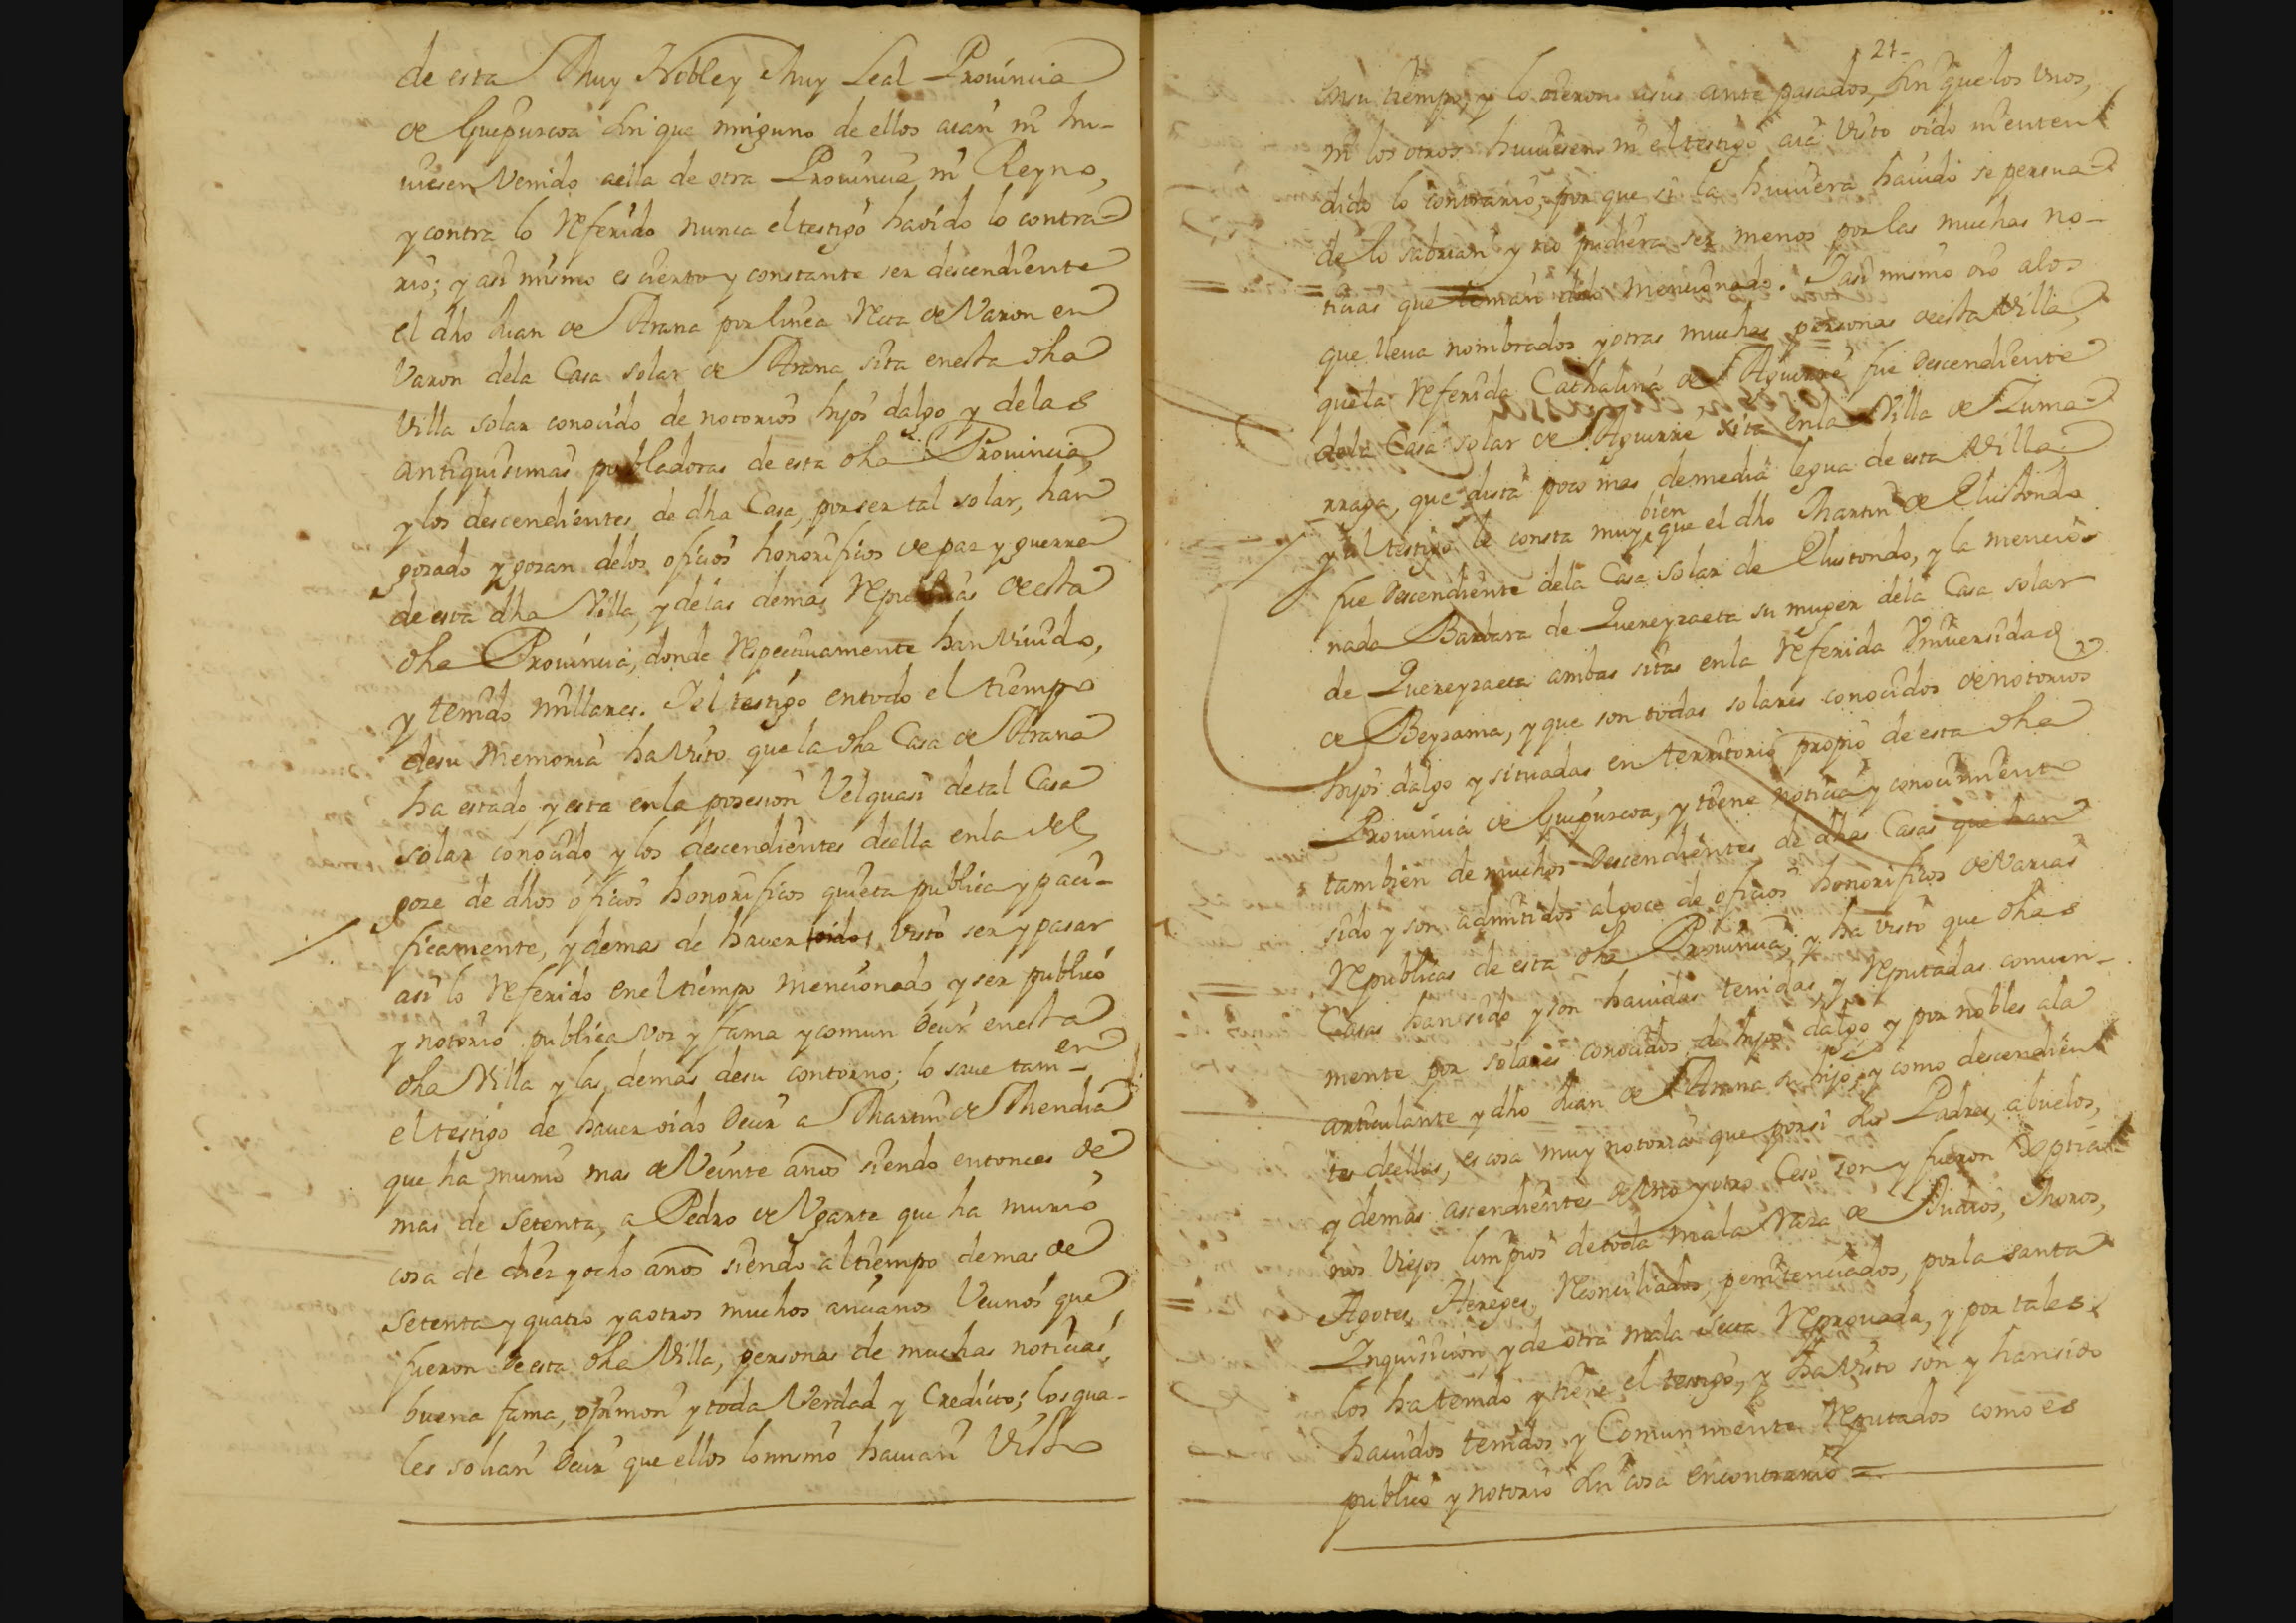 de esta Muy Noble y Muy Leal Prouincia
de Guipuscoa sin que ninguno de ellos aian ni hu-
uiesen Venido aella de otra Prouincia ni Reyno,
y contra lo referido nunca el testigo haoido lo contra-
rio; y asi mismo es cierto y constante ser descendiente
el dho Juan de Arana por linea recta de Varon en
Varon dela Casa solar de Arana sita enesta dha
Villa solar conocido de notorios hijos dalgo y delas
antiquisimas pobladoras de esta dha Prouincia,
y los descendientes de dha Casa, por ser tal solar, han
gozado y gozan delos oficios honorificos de paz y guerra
de esta dha Villa, y delas demas republicas de esta
dha Prouincia, donde respectiuamente han viuido,
y tenido millares. Y el testigo entodo el tiempo
desu Memoria ha visto que la dha Casa de Arana
ha estado y esta enla posesion Velquasi de tal Casa
solar conocido y los descendientes deella enla del
goze de dhos oficios honorificos quieta publica y paci-
ficamente, y demas de hauer oido, visto ser y pasar
asi lo referido enel tiempo mencionado y ser publico
y notorio publica voz y fama y comun decir enesta
dha Villa y las demas desu contorno; lo saue tam-
en
el testigo de hauer oido decir a Martin de Mendia
que ha murio mas de Veinte años siendo entonces de
mas de setenta, a Pedro de Ugarte que ha murio
cosa de diez y ocho años siendo altiempo demas de
setenta y quatro y aotros muchos ancianos Vecinos que
fueron de esta dha Villa, personas de muchas noticias,
buena fama, opinion y toda Verdad y Credito; los qua-
les solian decir que ellos lo mismo hauian Visto
21-
ensu tiempo, y lo oieron asus ante pasados, sin que los vnos,
ni los otros huuiesen ni el testigo aia visto oido ni enten
dido lo contrario; por que si la huuiera hauido se persua-
de lo sabrian y no pudiera ser menos por las muchas no-
ticias que tenian delo mencionado. Y asi mismo oio alos
que lleua nombrados y otras muchas personas de esta Villa,
que la referida Cathalina de Aguirre fue Descendiente
dela Casa solar de Aguirre, sita enla Villa de Zuma-
rraga, que dista poco mas demedia legua de esta Villa;
bien
y al testigo le consta muy que el dho Martin de Elustondo
fue Descendiente dela Casa solar de Elustondo, y la mencio-
nada Barbara de Quereyzaeta su muger dela Casa solar
de Quereyzaeta ambas sitas enla referida Vniuersidad
de Beyzama, y que son todas solares conocidos de notorios
hijos dalgo y situadas en territorio propio de esta dha
Prouincia de Guipuscoa, y tiene noticia y conocimiento
tambien de muchos Descendientes de dhas Casas que han
sido y son admitidos algoce de oficios honorificos de Varias
republicas de esta dha Prouincia; y ha visto que dhas
Casas han sido y son hauidas tenidas, y reputadas comun-
mente por solares conocidos de hijos dalgo y por nobles ala
articulante y dho Juan de Arana su hijo, y como descendien
tes deellas, es cosa muy notoria que por si dhos Padres, abuelos,
y demas ascendientes de vno y otro Ceso son y fueron Xptia-
nos Viejos limpios de toda mala raza de Judios, Moros,
Agotes, Hereges, reconciliados, penitenciados, por la santa
Inquisicion y de otra mala secta reprouada, y por tales
los ha tenido y tiene el testigo, y ha visto son y han sido
hauidos tenidos y Comunmente reputados como es
publico y notorio sin cosa encontrario =